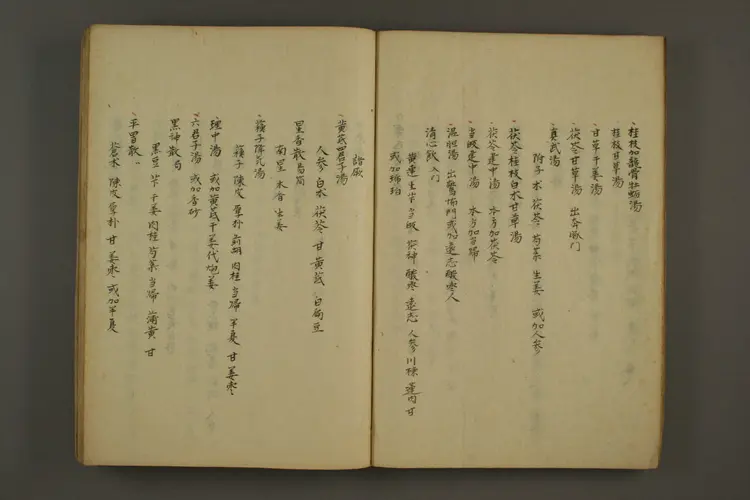 桂枝加龍骨牡蛎湯
桂枝甘草湯
甘草干姜湯
茯苓甘草湯 出奔豚門
真武湯
附子 朮 茯苓 芍薬 生姜 或加人参
茯苓桂枝白朮甘草湯
茯苓建中湯 本方加茯苓
当皈建中湯 本方加当帰
温胆湯 出驚悸門或加遠志酸枣人
清心 入门
黄連 生 当皈 茯神 酸枣 遠志 人参 川楝 蓮肉 甘
或加琥珀
諸厥
黄芪四君子湯
人参 白朮 茯苓 甘 黄芪 白扁豆
星香散 局
南星 木香 生姜
蘓子降氣湯
蘓子 陳皮 厚朴 前胡 肉桂 当帰 半夏 甘 姜枣
理中湯 或加黄芪干姜代炮姜
六君子湯 或加香砂
黑神散 局
黑豆 干姜 肉桂 芍薬 当帰 蒲黄 甘
平胃散
蒼朮 陳皮 厚朴 甘 姜枣 或加半夏